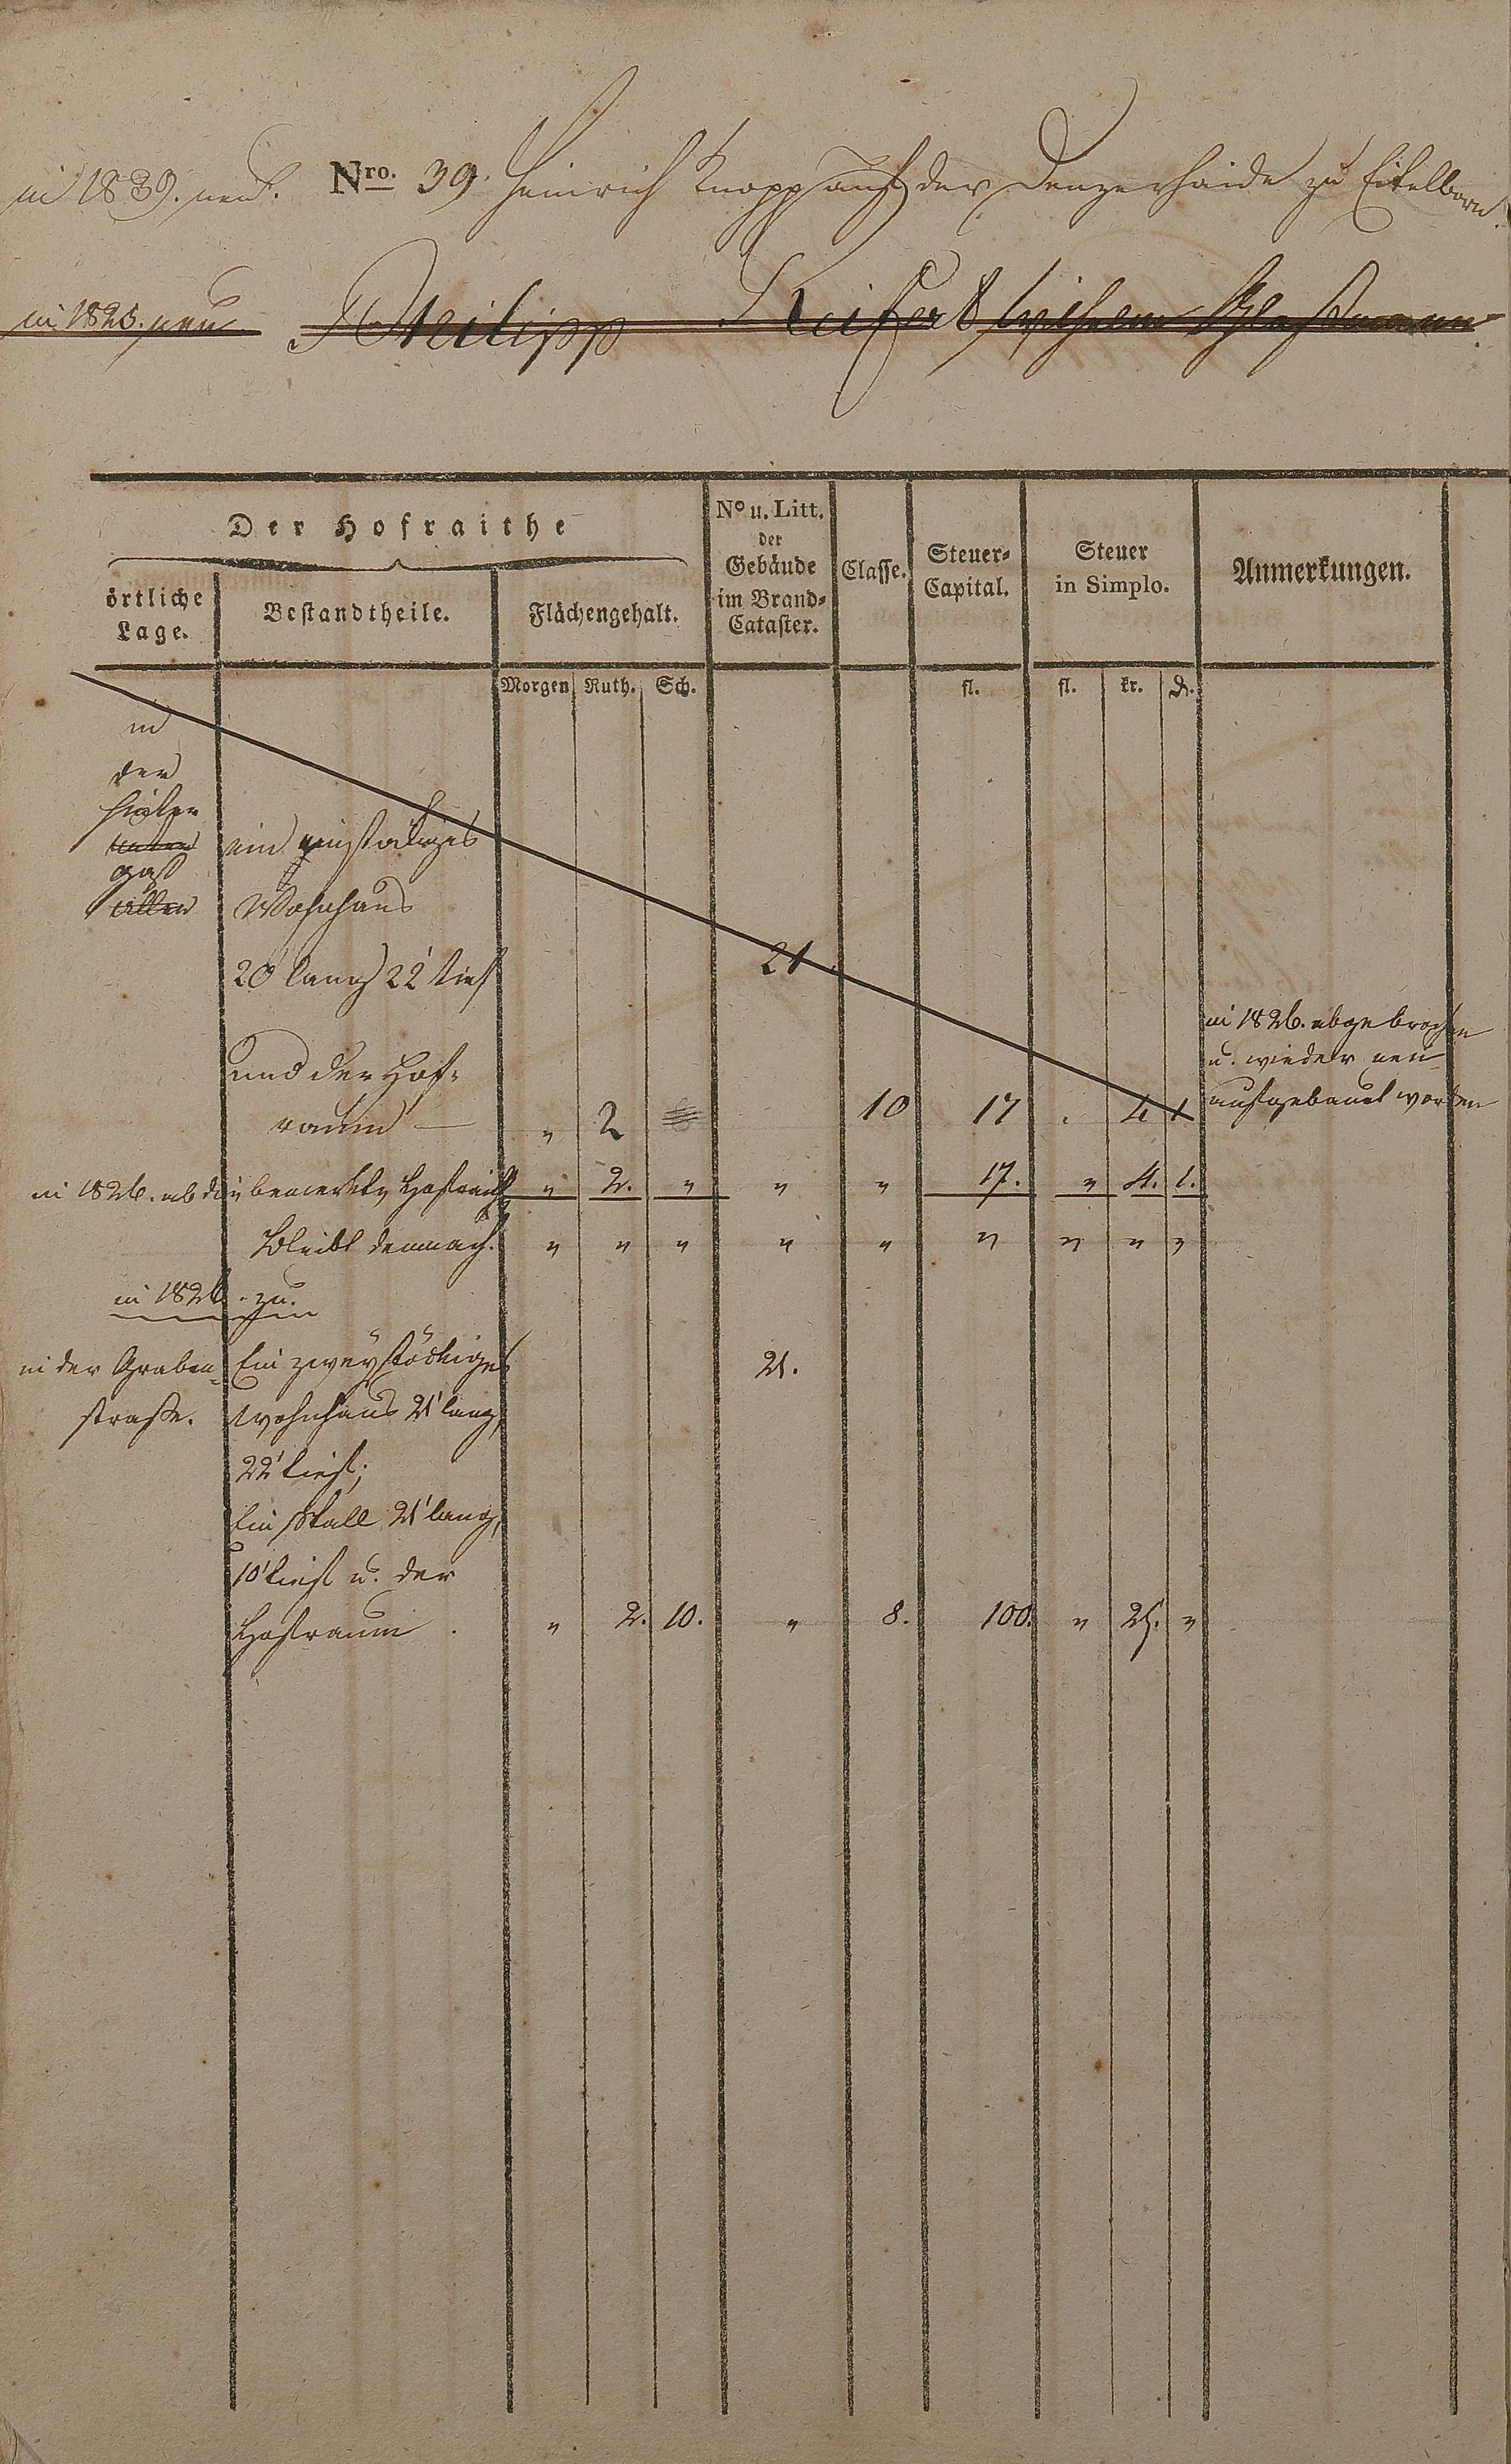 in 1839. neu. Nro. 39. Heinrich Knopp auf der Denzerhaide zu Eitelborn.
in 1825. neu Philipp Seifert Wilhelm
Der Hofraithe
örtliche Lage.
Bestandtheile.
Flächengehalt.
No u. Litt. der Gebäude im Brand-Cataster.
Classe.
Steuer-Capital.
Steuer in Simplo.
Anmerkungen.
Morgen Ruth. Sch. fl. fl. kr. d.
in
der
hinter
gaß ein einstöckiges
Wohnhaus
20' lang 22' tief 21
in 1826. abgebrochen
u. wieder neu
aufgebauet worden
und der Hof-
raum — " 2 10 17 . 4 1
in 1826. ab die bemerkte Hofraith " 2. " " " 17. " 4. 1.
Bleibt demnach. " " " " " " " " "
in 1826. zu.
in der Graben- Ein zweystöckiges 21.
straße. Wohnhaus 21' lang,
22' tief;
Ein Stall 21' lang,
10' tief u. der
Hofraum . " 2. 10. " 8. 100. " 25. "